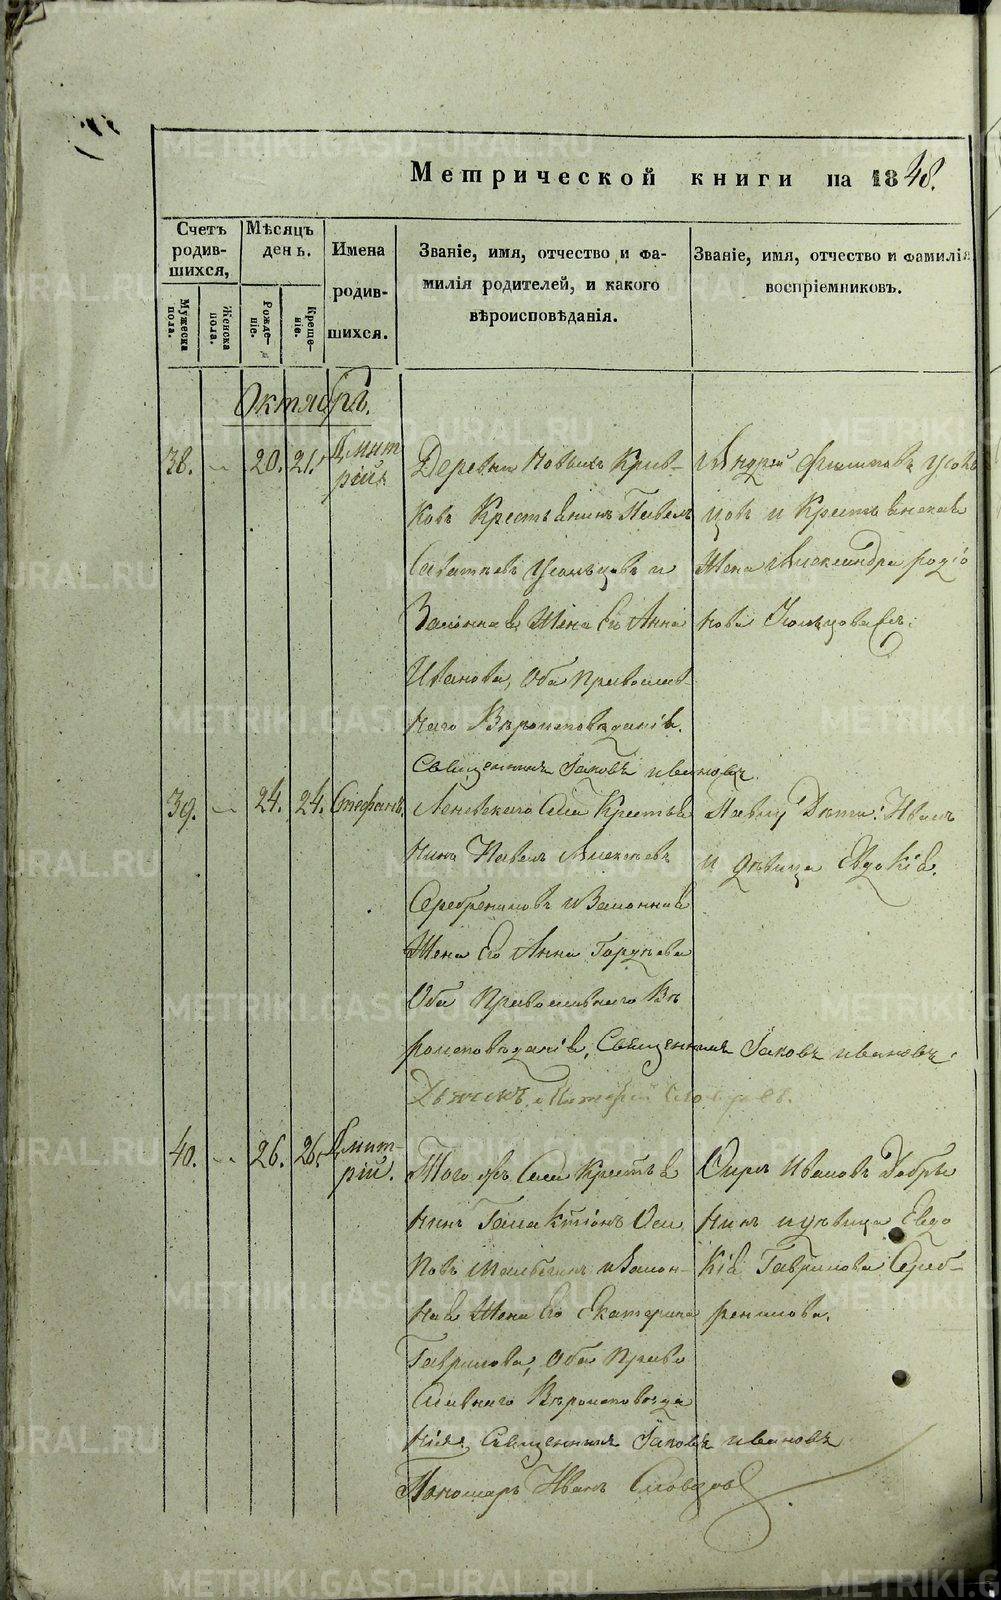 Метрической книги на 1848.
Счетъ родив-шихся,
Мужеска пола.
Женска пола.
Мѣсяцъ день.
Рожде-ніе.
Креще-ніе.
Имена родив-шихся.
Званіе, имя, отчество и фа-
милія родителей, и какого
вѣроисповѣданія.
Званіе, имя, отчество и фамилія
воспріемниковъ.
Октябрь.
38. 20. 21. Дмит-
рій.
Деревни Новыхъ Крив-
ковъ Крестьянинъ Павелъ
Усольцовъ и
Законная Жена Его Анна
Иванова, Оба Православ-
наго Вѣроисповѣданія.
Священникъ Іаковъ Ивановъ
Андрей Филиповъ Усоль
цовъ и Крестьянская
Жена Александра Родіо
нова Усольцова
39. 24. 24. Стефанъ.
Леневскаго Села Крестья
нинъ Павелъ Алексѣевъ
Серебрениковъ и Законная
Жена Его Анна
Оба Православнаго Вѣ
роисповѣданія, Священникъ Іаковъ Ивановъ.
Дьячекъ
Павлу Дѣти: Иванъ
и дѣвица Евдокія.
40. 26. 26. Дмит-
рій.
Того жъ Села Крестья
нинъ Галактіонъ Оси
повъ и Закон-
ная Жена Его Екатерина
Гаврилова, Оба Право
славнаго Вѣроисповѣда
нія, Священникъ Іаковъ Ивановъ
Пономарь Иванъ Словцовъ
Ивановъ Добры
нинъ и дѣвица Евдо
кія Гаврилова Сереб-
реникова.
METRIKI.GASO-URAL.RU